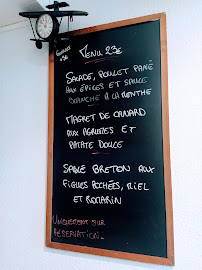 Menu 23€
Salade, poulet pané
aux épices et sauce
blanche à la menthe
Magret de canard
aux agrumes et
patate douce
Sablé breton aux
figues rochées, miel
et romarin
Uniquement sur
réservation.